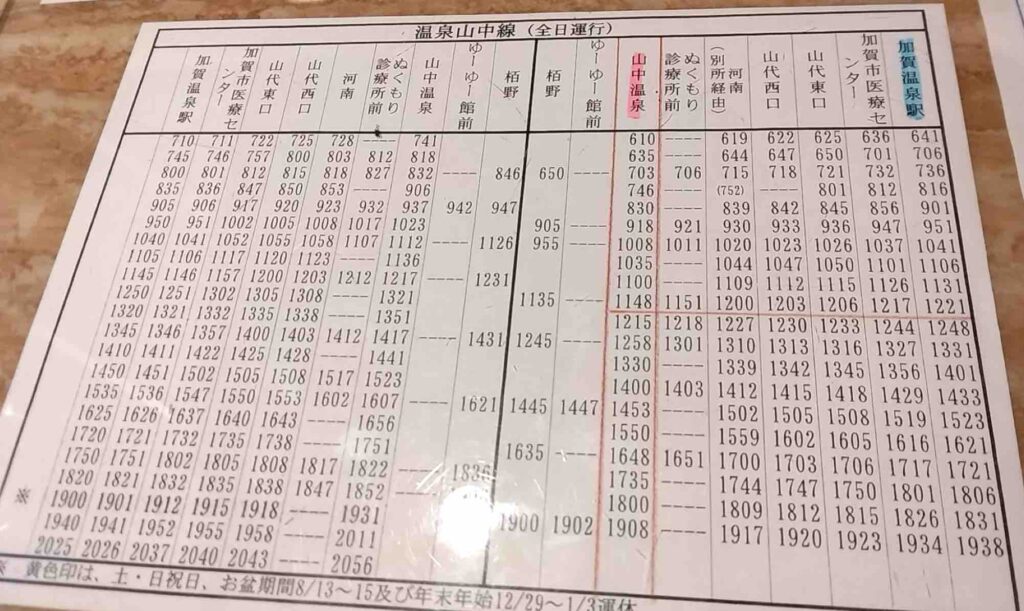 温泉山中線(全日運行)
加賀温泉駅 加賀市医療センター 山代東口 山代西口 河南 ぬくもり診療所前 山中温泉 ゆーゆー館前 栢野 栢野 ゆーゆー館前 山中温泉 ぬくもり診療所前 河南(別所経由) 山代西口 山代東口 加賀市医療センター 加賀温泉駅
710 711 722 725 728 ---- 741 610 ---- 619 622 625 636 641
745 746 757 800 803 812 818 635 ---- 644 647 650 701 706
800 801 812 815 818 827 832 ---- 846 650 ---- 703 706 715 718 721 732 736
835 836 847 850 853 ---- 906 746 ---- (752) ---- 801 812 816
905 906 917 920 923 932 937 942 947 830 ---- 839 842 845 856 901
950 951 1002 1005 1008 1017 1023 905 ---- 918 921 930 933 936 947 951
1040 1041 1052 1055 1058 1107 1112 ---- 1126 955 ---- 1008 1011 1020 1023 1026 1037 1041
1105 1106 1117 1120 1123 ---- 1136 1035 ---- 1044 1047 1050 1101 1106
1145 1146 1157 1200 1203 1212 1217 ---- 1231 1100 ---- 1109 1112 1115 1126 1131
1250 1251 1302 1305 1308 ---- 1321 1135 ---- 1148 1151 1200 1203 1206 1217 1221
1320 1321 1332 1335 1338 ---- 1351 1215 1218 1227 1230 1233 1244 1248
1345 1346 1357 1400 1403 1412 1417 ---- 1431 1245 ---- 1258 1301 1310 1313 1316 1327 1331
1410 1411 1422 1425 1428 ---- 1441 1330 ---- 1339 1342 1345 1356 1401
1450 1451 1502 1505 1508 1517 1523 1400 1403 1412 1415 1418 1429 1433
1535 1536 1547 1550 1553 1602 1607 ---- 1621 1445 1447 1453 ---- 1502 1505 1508 1519 1523
1625 1626 1637 1640 1643 ---- 1656 1550 ---- 1559 1602 1605 1616 1621
1720 1721 1732 1735 1738 ---- 1751 1635 ---- 1648 1651 1700 1703 1706 1717 1721
1750 1751 1802 1805 1808 1817 1822 ---- 1836 1735 ---- 1744 1747 1750 1801 1806
1820 1821 1832 1835 1838 1847 1852 1800 ---- 1809 1812 1815 1826 1831
※ 1900 1901 1912 1915 1918 ---- 1931 1900 1902 1908 ---- 1917 1920 1923 1934 1938
1940 1941 1952 1955 1958 ---- 2011
2025 2026 2037 2040 2043 ---- 2056
※ 黄色印は、土・日祝日、お盆期間8/13～15及び年末年始12/29～1/3運休